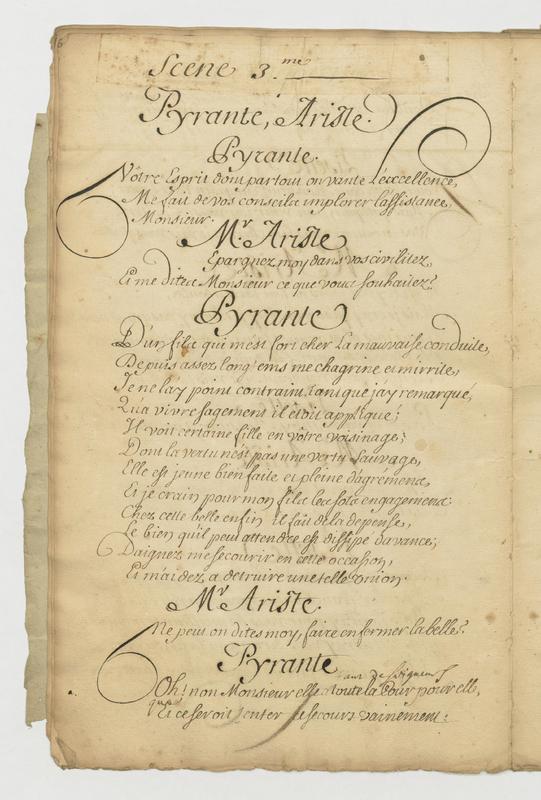 6
Scene 3.me
Pyrante, Ariste.
Pyrante.
Vôtre Esprit dont partout on vante L'exccellence,
Me fait de vos conseils implorer l'assistance,
Monsieur.
Mr. Ariste
Epargnez moy dans vos civilitez,
Et me dites Monsieur ce que vous souhaitez?
Pyrante
D'un fils qui m'est fort cher La mauvaise conduite,
Depuis assez longtems me chagrine et m'irrite,
Je ne l'ay point contraint, tant que j'ay remarqué,
Qu'a vivre sagement il étoit appliqué;
Il voit certaine fille en vôtre voisinage;
Dont la vertu n'est pas une vertu Sauvage,
Elle est jeune bien faite et pleine d'agremens,
Et je crain pour mon fils les sots engagemens.
Chez cette belle enfin il fait de la depense,
Le bien qu'il peut attendre est dissipé d'avance;
Daignez me secourir en cette occasion,
Et m'aidez a detruire une telle union.
Mr Ariste.
Ne peut on dites moy, faire enfermer la belle?
Pyrante
Oh! non Monsieur elle a toute la Cour pour elle,
Et ce seroit tenter secours vainement: